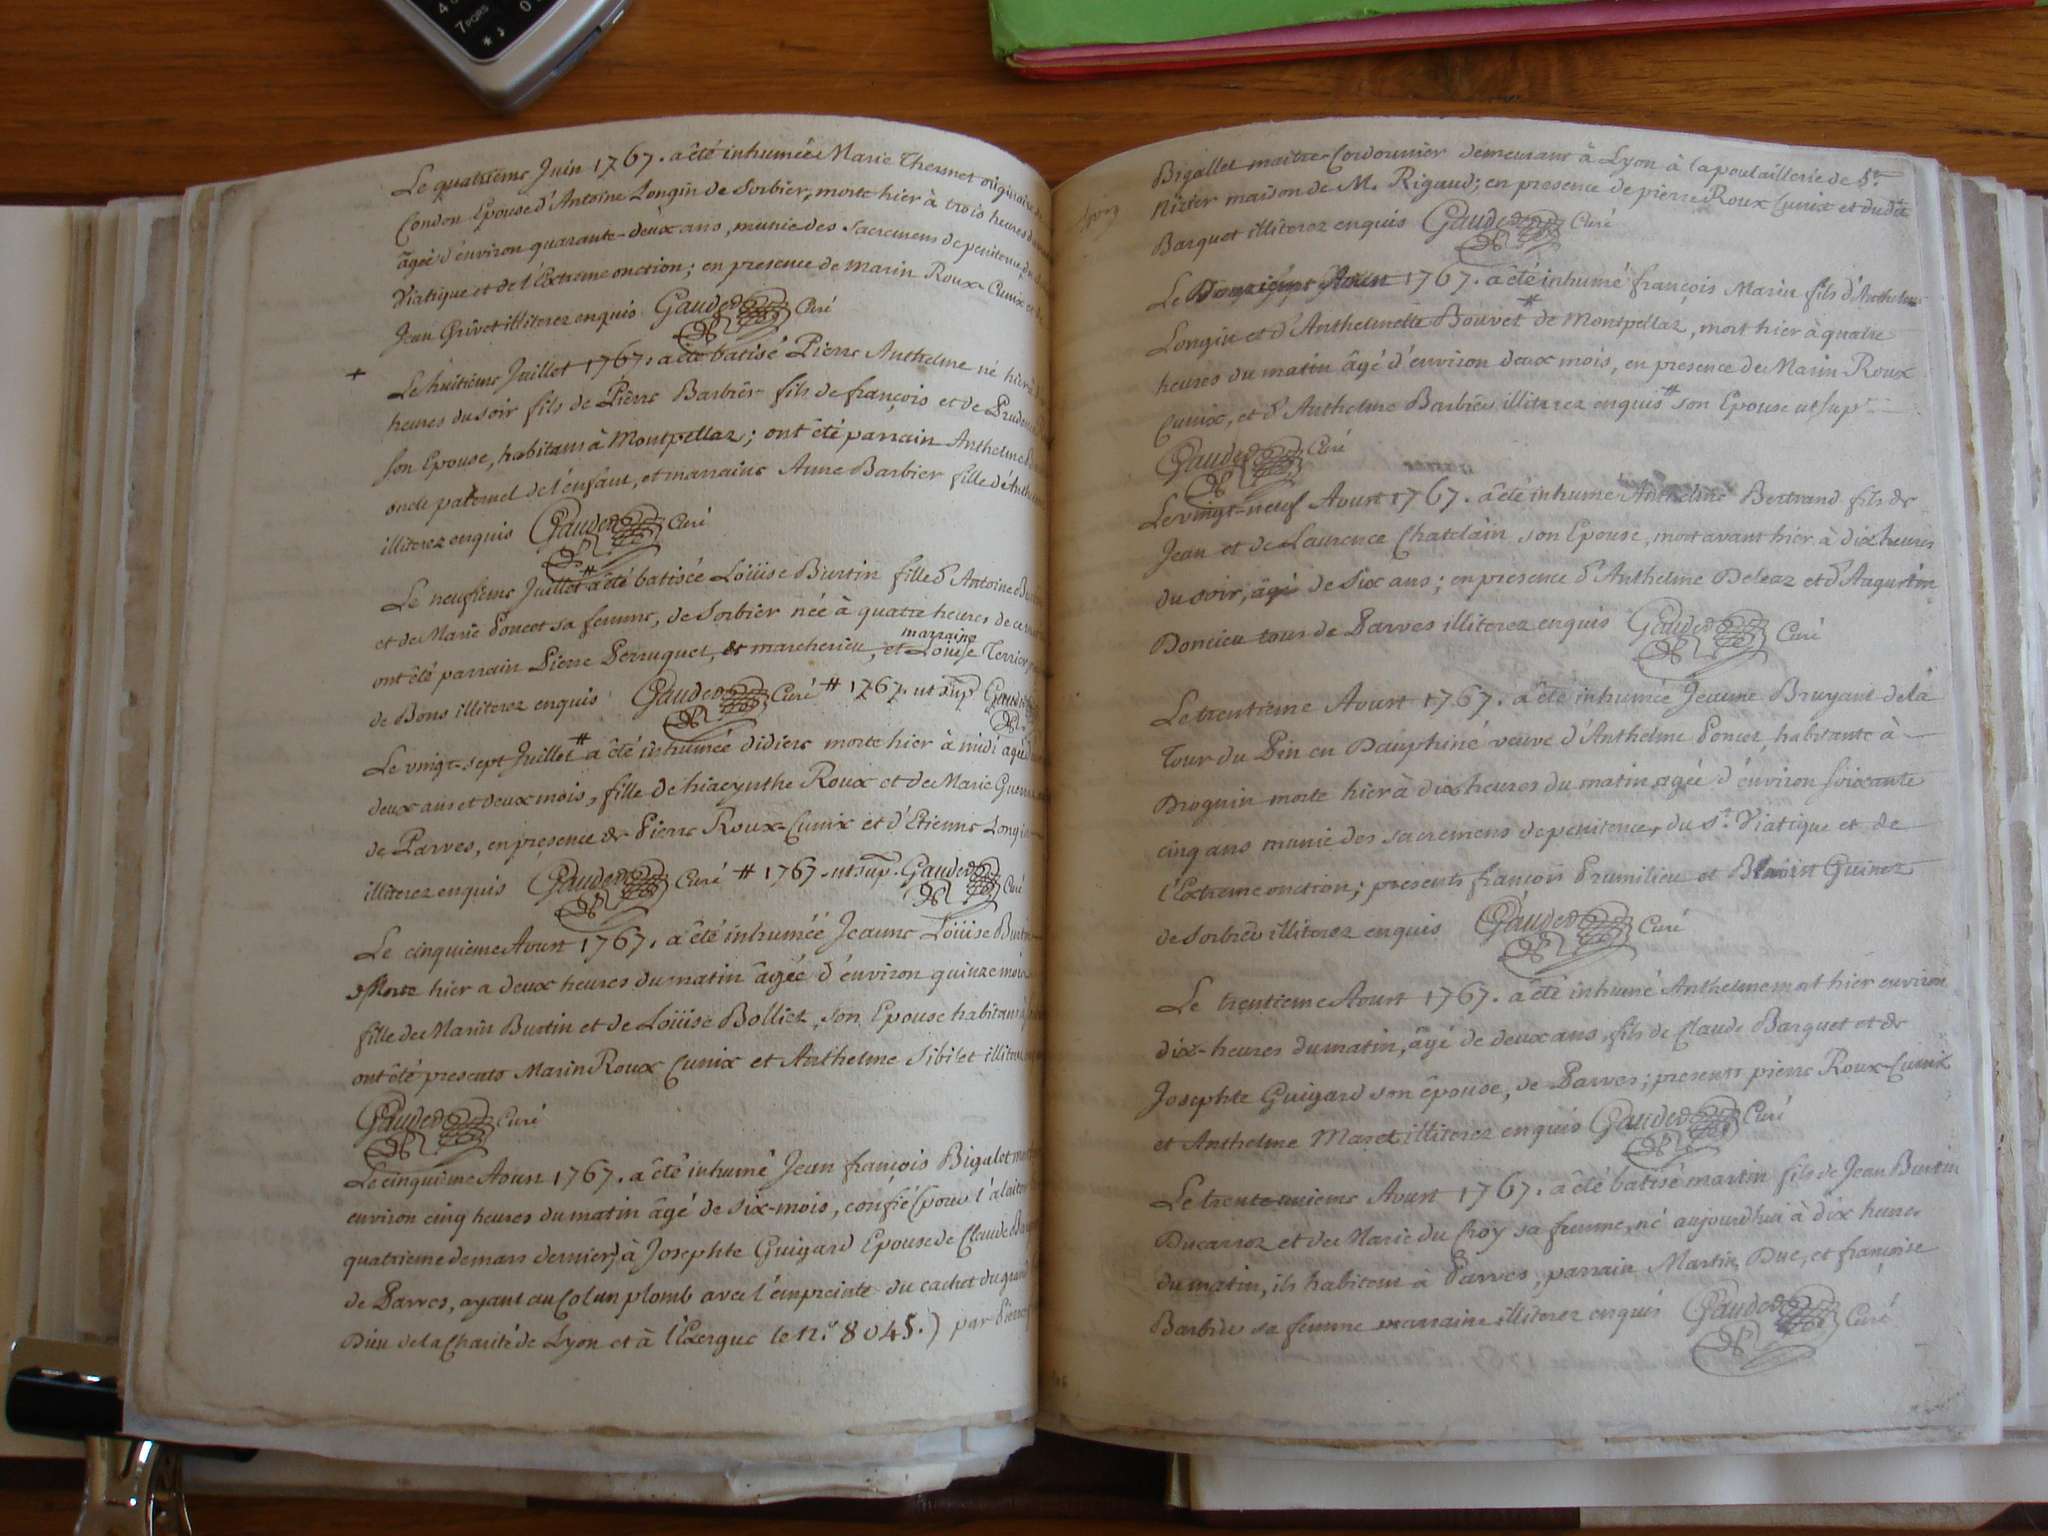 Le quatrieme Juin 1767. a êté inhumée Marie Thevenet originaire de
Condon Epouse d'Antoine Longin de Sorbier, morte hier à trois heures
âgée d'environ quarante-deux ans, munie des sacremens de penitence, du
Viatique et de l'Extreme onction; en presence de Marin Roux-Cunix et de
Jean Grivet illiterez enquis Gaudet Curé
+
Le huitieme Juillet 1767. a êté batisé Pierre Anthelme né hier à
heures du soir fils de Pierre Barbier fils de françois et de
son Epouse, habitans à Montpellaz; ont êté parrain Anthelme
oncle paternel de l'enfant, et marraine Anne Barbier fille d'
illiterez enquis Gaudet Curé
Le neufieme Juillet # a êté batisée Loüise Burtin fille d'Antoine
et de Marie Poncet sa femme, de Sorbier née à quatre heures de ce
marraine
ont êté parrain Pierre Perruquet, de marcherieu, et Louise Terrier
de Bons illiterez enquis Gaudet Curé # 1767. ut sup. Gaudet
Le vingt-sept Juillet # a êté inhumée didiere morte hier à midi agée
deux ans et deux mois, fille de hiacynthe Roux et de Marie
de Parves, en presence de Pierre Roux-Cunix et d'Etienne Longin
illiterez enquis Gaudet Curé # 1767. ut sup. Gaudet Curé
Le cinquieme Aoust 1767. a êté inhumée Jeanne Loüise Burtin
Morte hier a deux heures du matin âgée d'environ quinze mois
fille de Marin Burtin et de Loüise Bolliez, son Epouse habitans
ont êté presents Marin Roux Cunix et Anthelme Sibilet
Gaudet Curé
Le cinquieme Aoust 1767. a êté inhumé Jean françois Bigalet
environ cinq heures du matin âgé de six-mois, confié (pour l'alaiter
quatrieme de mars dernier) à Josephte Guigard Epouse de Claude
de Parves, ayant au Col un plomb avec l'empreinte du cachet du grand
Dieu de la Charité de Lyon et à l'Exergue le n.o 8045.) par
Bigallet maitre-Cordonnier demeurant à Lyon à la poulaillerie de St.
Nizier maison de M. Rigaud; en presence de pierre Roux Cunix et dudit
Barquet illiterez enquis Gaudet Curé
Le Aoust 1767. a êté inhumé françois Marin fils d'Anthelme
Longin et d'Anthelmette Bouvet # de Montpellaz, mort hier à quatre
heures du matin âgé d'environ deux mois, en presence de Marin Roux
Cunix, et d'Anthelme Barbier illiterez enquis # son Epouse ut sup.
Gaudet Curé
Le vingt-neuf Aoust 1767. a êté inhumé Anthelme Bertrand fils de
Jean et de Laurence Chatelain son Epouse, mort avant hier à dix heures
du soir, âgé de Six ans; en presence d'Anthelme Deleaz et d'Augustin
Doncieu tous de Parves illiterez enquis Gaudet Curé
Le trentieme Aoust 1767. a êté inhumée Jeanne Bruyant de la
Tour du Pin en Dauphiné veuve d'Anthelme Poncet, habitante à
Drognin morte hier à dix heures du matin agée d'environ soixante
cinq ans munie des sacremens de penitence, du St. Viatique et de
l'Extreme onction; presents françois Prumilieu et Guinet
de Sorbier illiterez enquis Gaudet Curé
Le trentieme Aoust 1767. a êté inhumé Anthelme mort hier environ
dix-heures du matin, âgé de deux ans, fils de Claude Barquet et de
Josephte Guigard son épouse, de Parves; presents pierre Roux-Cunix
et Anthelme Maret illiterez enquis Gaudet Curé
Le trente-unieme Aoust 1767. a êté batisé martin fils de Jean Burtin
Ducarroz et de Marie du Croy sa femme, né aujourdhui à dix heures
du matin, ils habitent à Parves, parrain Martin Duc, et françoise
Barbier sa femme marraine illiterez enquis Gaudet Curé